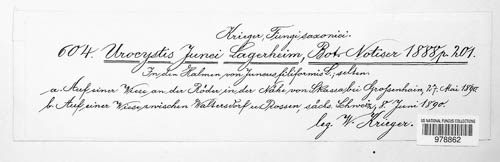 Krieger, Fungi saxonici.
604. Urocystis Junci Lagerheim, Bot. Notiser 1888, p. 201.
In den Halmen von Juncus filiformis L., selten.
a. Auf einer Wiese an der Röder, in der Nähe von Skassa bei Großenhain, 27. Mai 1890.
b. Auf einer Wiese zwischen Waltersdorf u. Prossen, sächs. Schweiz, 8. Juni 1890.
leg. W. Krieger.
US NATIONAL FUNGUS COLLECTIONS
978862